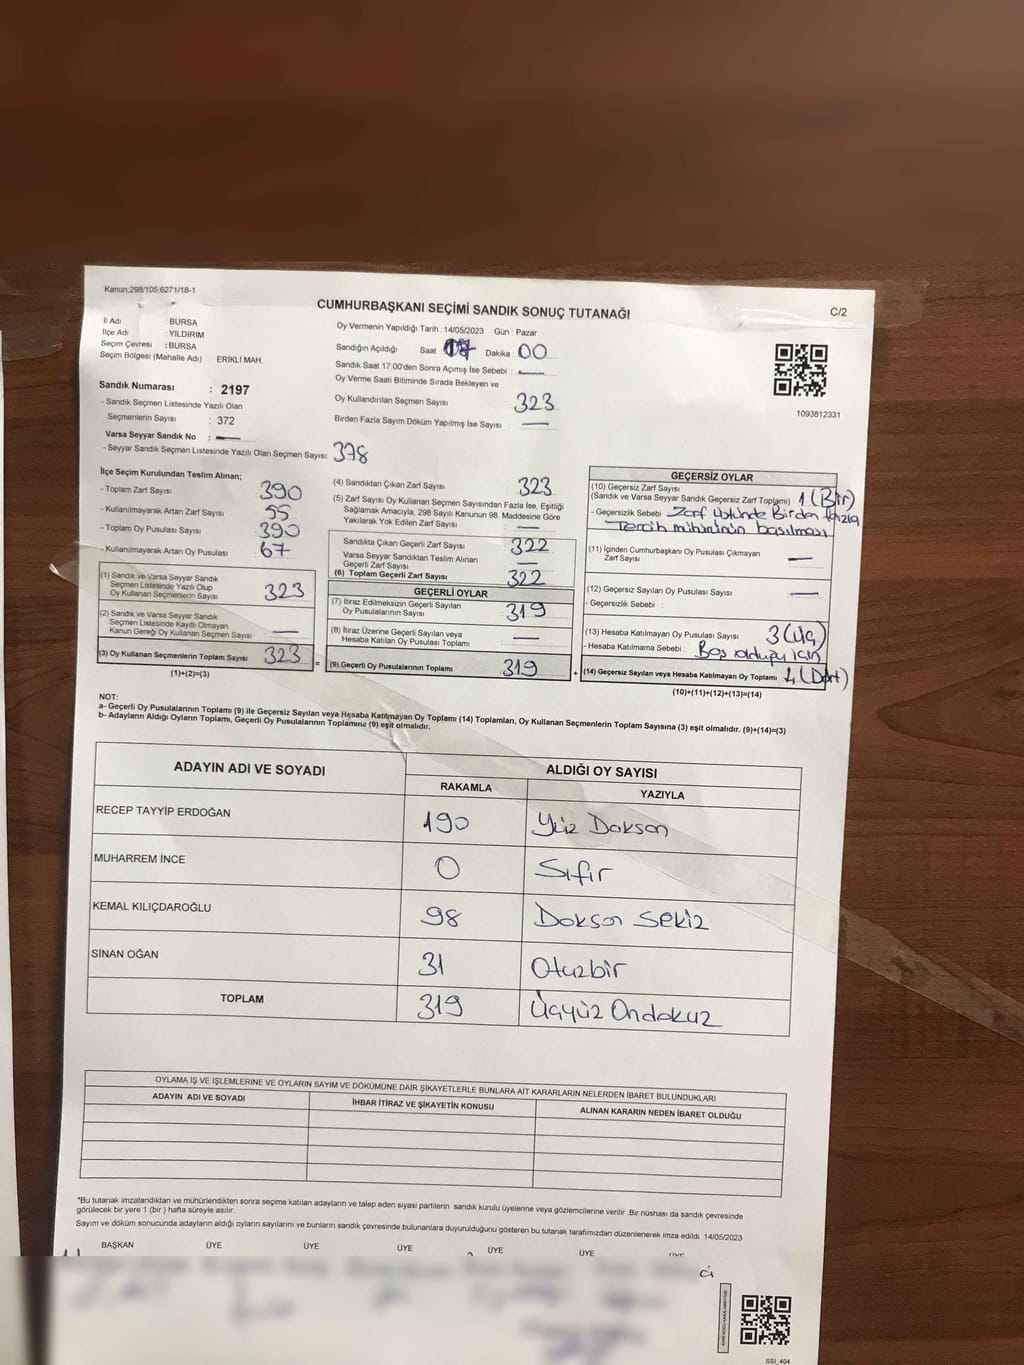 Kanun;298/105;6271/18-1
CUMHURBAŞKANI SEÇİMİ SANDIK SONUÇ TUTANAĞI
C/2
İl Adı BURSA
İlçe Adı : YILDIRIM
Seçim Çevresi : BURSA
Seçim Bölgesi (Mahalle Adı) ERİKLİ MAH.
Sandık Numarası : 2197
- Sandık Seçmen Listesinde Yazılı Olan
Seçmenlerin Sayısı : 372
Varsa Seyyar Sandık No : —
- Seyyar Sandık Seçmen Listesinde Yazılı Olan Seçmen Sayısı: 378
Oy Vermenin Yapıldığı Tarih : 14/05/2023 Gün : Pazar
Sandığın Açıldığı Saat 17 Dakika : 00
Sandık Saat 17:00'den Sonra Açımış İse Sebebi : —
Oy Verme Saati Bitiminde Sırada Bekleyen ve
Oy Kullandırılan Seçmen Sayısı 323
Birden Fazla Sayım Döküm Yapılmış İse Sayısı : —
1093812331
İlçe Seçim Kurulundan Teslim Alınan;
- Toplam Zarf Sayısı : 390
- Kullanılmayarak Artan Zarf Sayısı : 55
- Toplam Oy Pusulası Sayısı : 390
- Kullanılmayarak Artan Oy Pusulası : 67
(1) Sandık ve Varsa Seyyar Sandık
Seçmen Listesinde Yazılı Olup
Oy Kullanan Seçmenlerin Sayısı : 323
(2) Sandık ve Varsa Seyyar Sandık
Seçmen Listesinde Kayıtlı Olmayan
Kanun Gereği Oy Kullanan Seçmen Sayısı : —
(3) Oy Kullanan Seçmenlerin Toplam Sayısı : 323
(1)+(2)=(3)
=
(4) Sandıktan Çıkan Zarf Sayısı : 323
(5) Zarf Sayısı Oy Kullanan Seçmen Sayısından Fazla İse, Eşitliği
Sağlamak Amacıyla, 298 Sayılı Kanunun 98. Maddesine Göre
Yakılarak Yok Edilen Zarf Sayısı : —
Sandıkta Çıkan Geçerli Zarf Sayısı : 322
Varsa Seyyar Sandıktan Teslim Alınan
Geçerli Zarf Sayısı : —
(6) Toplam Geçerli Zarf Sayısı : 322
GEÇERLİ OYLAR
(7) İtiraz Edilmeksizin Geçerli Sayılan
Oy Pusulalarının Sayısı : 319
(8) İtiraz Üzerine Geçerli Sayılan veya
Hesaba Katılan Oy Pusulası Toplamı : —
(9) Geçerli Oy Pusulalarının Toplamı : 319
+
GEÇERSİZ OYLAR
(10) Geçersiz Zarf Sayısı
(Sandık ve Varsa Seyyar Sandık Geçersiz Zarf Toplamı) : 1 (Bir)
- Geçersizlik Sebebi : Zarf Üstünde Birden fazla
Tercih mührünün basılması
(11) İçinden Cumhurbaşkanı Oy Pusulası Çıkmayan
Zarf Sayısı : —
(12) Geçersiz Sayılan Oy Pusulası Sayısı : —
- Geçersizlik Sebebi :
(13) Hesaba Katılmayan Oy Pusulası Sayısı : 3 (Üç)
- Hesaba Katılmama Sebebi : Boş olduğu için
(14) Geçersiz Sayılan veya Hesaba Katılmayan Oy Toplamı : 4 (Dört)
(10)+(11)+(12)+(13)=(14)
NOT:
a- Geçerli Oy Pusulalarının Toplamı (9) ile Geçersiz Sayılan veya Hesaba Katılmayan Oy Toplamı (14) Toplamları, Oy Kullanan Seçmenlerin Toplam Sayısına (3) eşit olmalıdır. (9)+(14)=(3)
b- Adayların Aldığı Oyların Toplamı, Geçerli Oy Pusulalarının Toplamına (9) eşit olmalıdır.
ADAYIN ADI VE SOYADI ALDIĞI OY SAYISI
RAKAMLA YAZIYLA
RECEP TAYYİP ERDOĞAN 190 Yüz Doksan
MUHARREM İNCE 0 Sıfır
KEMAL KILIÇDAROĞLU 98 Doksan Sekiz
SİNAN OĞAN 31 Otuzbir
TOPLAM 319 Üçyüz Ondokuz
OYLAMA İŞ VE İŞLEMLERİNE VE OYLARIN SAYIM VE DÖKÜMÜNE DAİR ŞİKAYETLERLE BUNLARA AİT KARARLARIN NELERDEN İBARET BULUNDUKLARI
ADAYIN ADI VE SOYADI İHBAR İTİRAZ VE ŞİKAYETİN KONUSU ALINAN KARARIN NEDEN İBARET OLDUĞU
*Bu tutanak imzalandıktan ve mühürlendikten sonra seçime katılan adayların ve talep eden siyasi partilerin sandık kurulu üyelerine veya gözlemcilerine verilir .Bir nüshası da sandık çevresinde
görülecek bir yere 1 (bir ) hafta süreyle asılır.
Sayım ve döküm sonucunda adayların aldığı oyların sayılarını ve bunların sandık çevresinde bulunanlara duyurulduğunu gösteren bu tutanak tarafımızdan düzenlenerek imza edildi. 14/05/2023
BAŞKAN ÜYE ÜYE ÜYE ÜYE ÜYE ÜYE
SSI_404